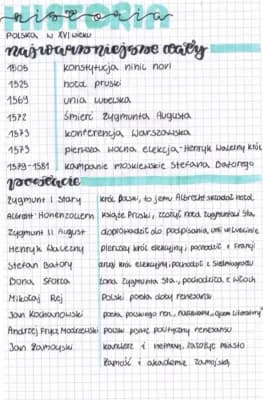 HISTORIA
historia
POLSKA W XVI wieku
najważniejsze daty
1505 konstytucja nihil novi
1525 hołd pruski
1569 unia lubelska
1572 śmierć Zygmunta Augusta
1573 konferencja Warszawska
1573 pierwsza wolna elekcja - Henryk Walezny król
1579-1581 kampanie moskiewskie Stefana Batorego
postacie
Zygmunt I Stary król Polski, to jemu Albrecht składał hołd,
Albrecht Hohenzollern książe Pruski, złożył hołd Zygmuntowi Sta,
Zygmunt II August doprowadził do podpisania unii w Lublinie
Henryk Walezny pierwszy król elekcyjny pochodził z Francji
Stefan Batory drugi król elekcyjny, pochodził z Siedmiogrodu
Bona Sforza żona Zygmunta Sta., pochodziła z Włoch
Mikołaj Rej Polski poeta doby renesansu
Jan Kochanowski poeta polskiego ren., nazywany "ojcem literatury"
Andrzej Frycz Modrzewski polski pisarz polityczny renesansu
Jan Zamoyski kanclerz i hetman, założył miasto
Zamość i akademię zamojską